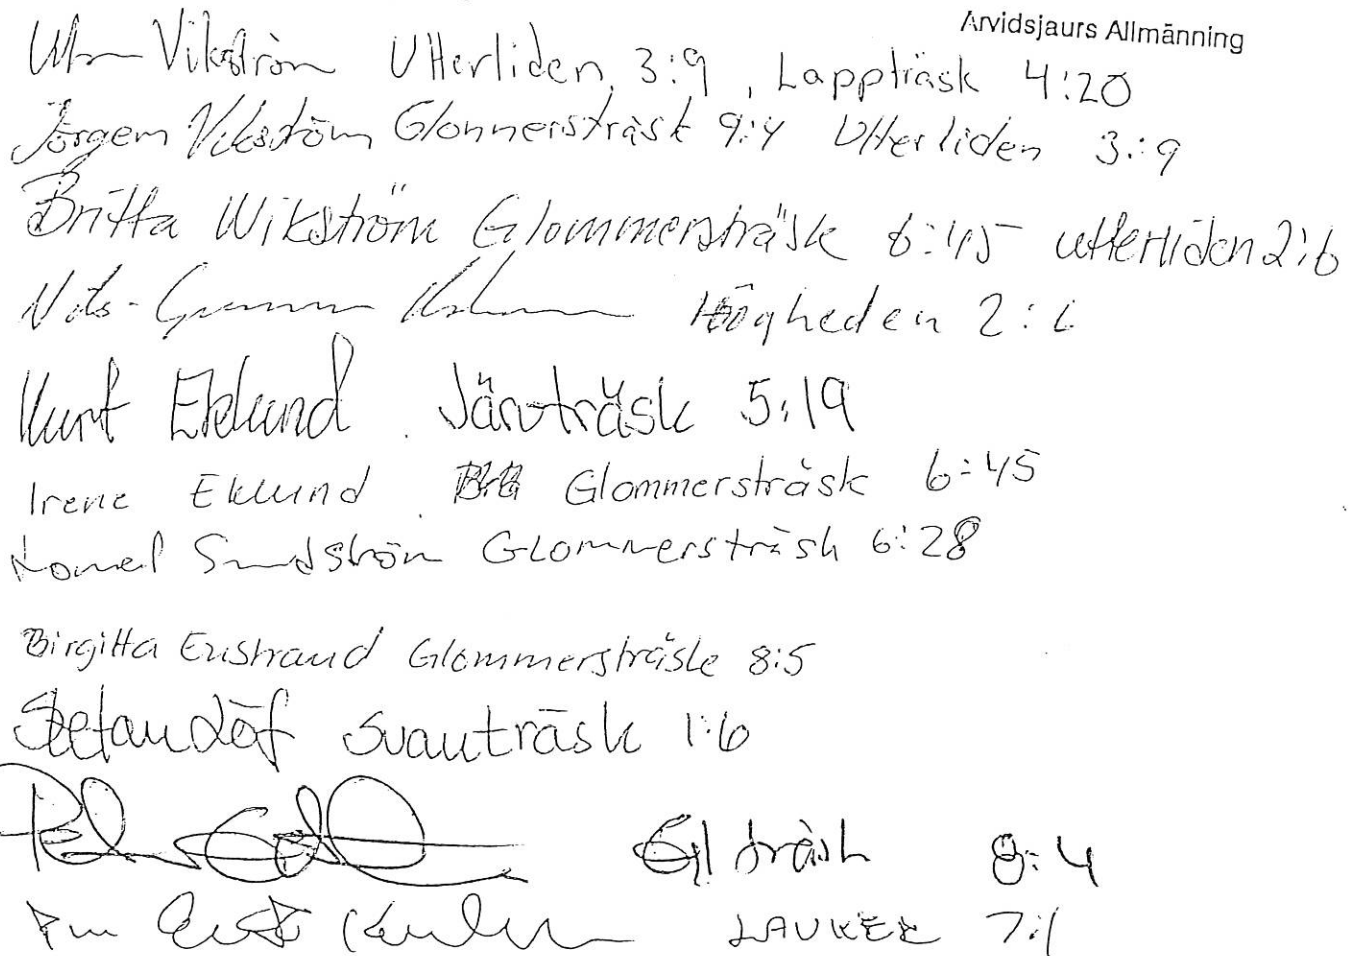 Arvidsjaurs Allmänning
Vikström Utterliden 3:9, Lappträsk 4:20
Jörgen Vikström Glommersträsk 9:4 Utterliden 3:9
Britta Wikström Glommersträsk 6:45 utterliden 2:6
Nils-Gunnar Högheden 2:6
Kurt Eklund Järvträsk 5:19
Irene Eklund Glommersträsk 6:45
Sundström Glommersträsk 6:28
Birgitta Enstrand Glommersträsk 8:5
Stefan Löf Svanträsk 1:6
Gl träsk 8:4
LAUKER 7:1